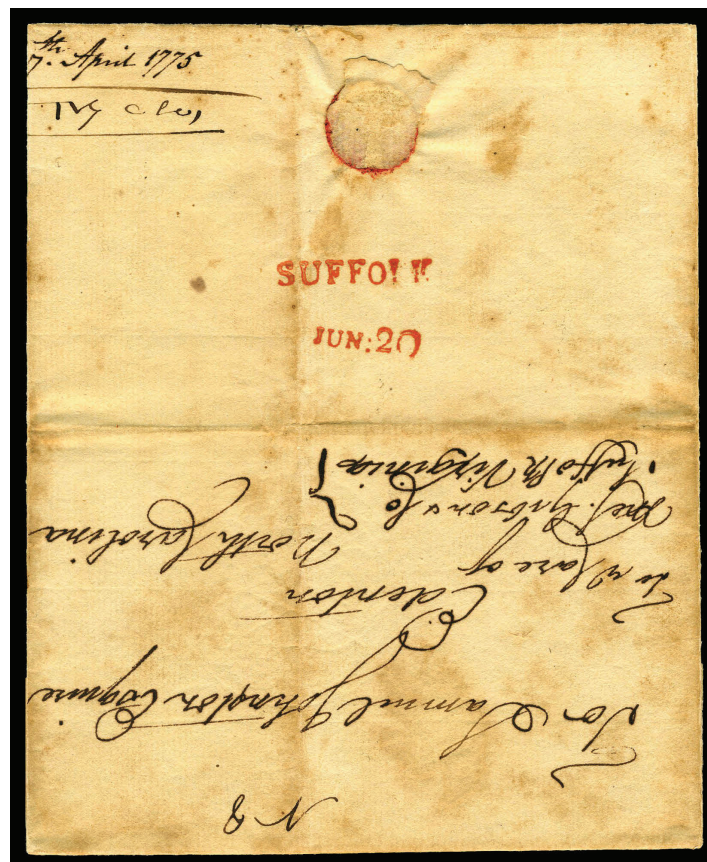 7th. April 1775
SUFFOLK
JUN:20
N 8
For Samuel Johnston Esquire
Edenton
North Carolina
To ye Care of
Gibson & Co
Suffolk Virginia